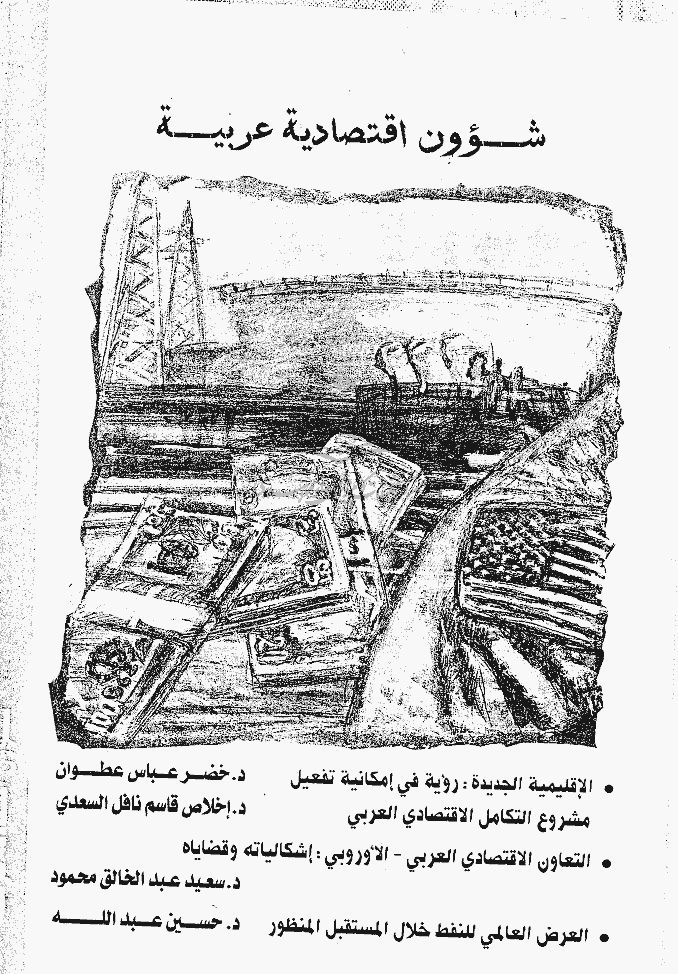 شـــؤون اقتصادية عربيـــة
• الإقليمية الجديدة : رؤية في إمكانية تفعيل د. خضـر عـباس عطـــوان
مشروع التكامل الاقتصادي العربي د. إخلاص قاسم نافل السعدي
• التعاون الاقتصادي العربي - الأوروبي : إشكالياته وقضاياه
د. سعـيد عـبد الخالق محمود
• العرض العالمي للنفط خلال المستقبل المنظور د. حســـين عـــبد اللـــــه